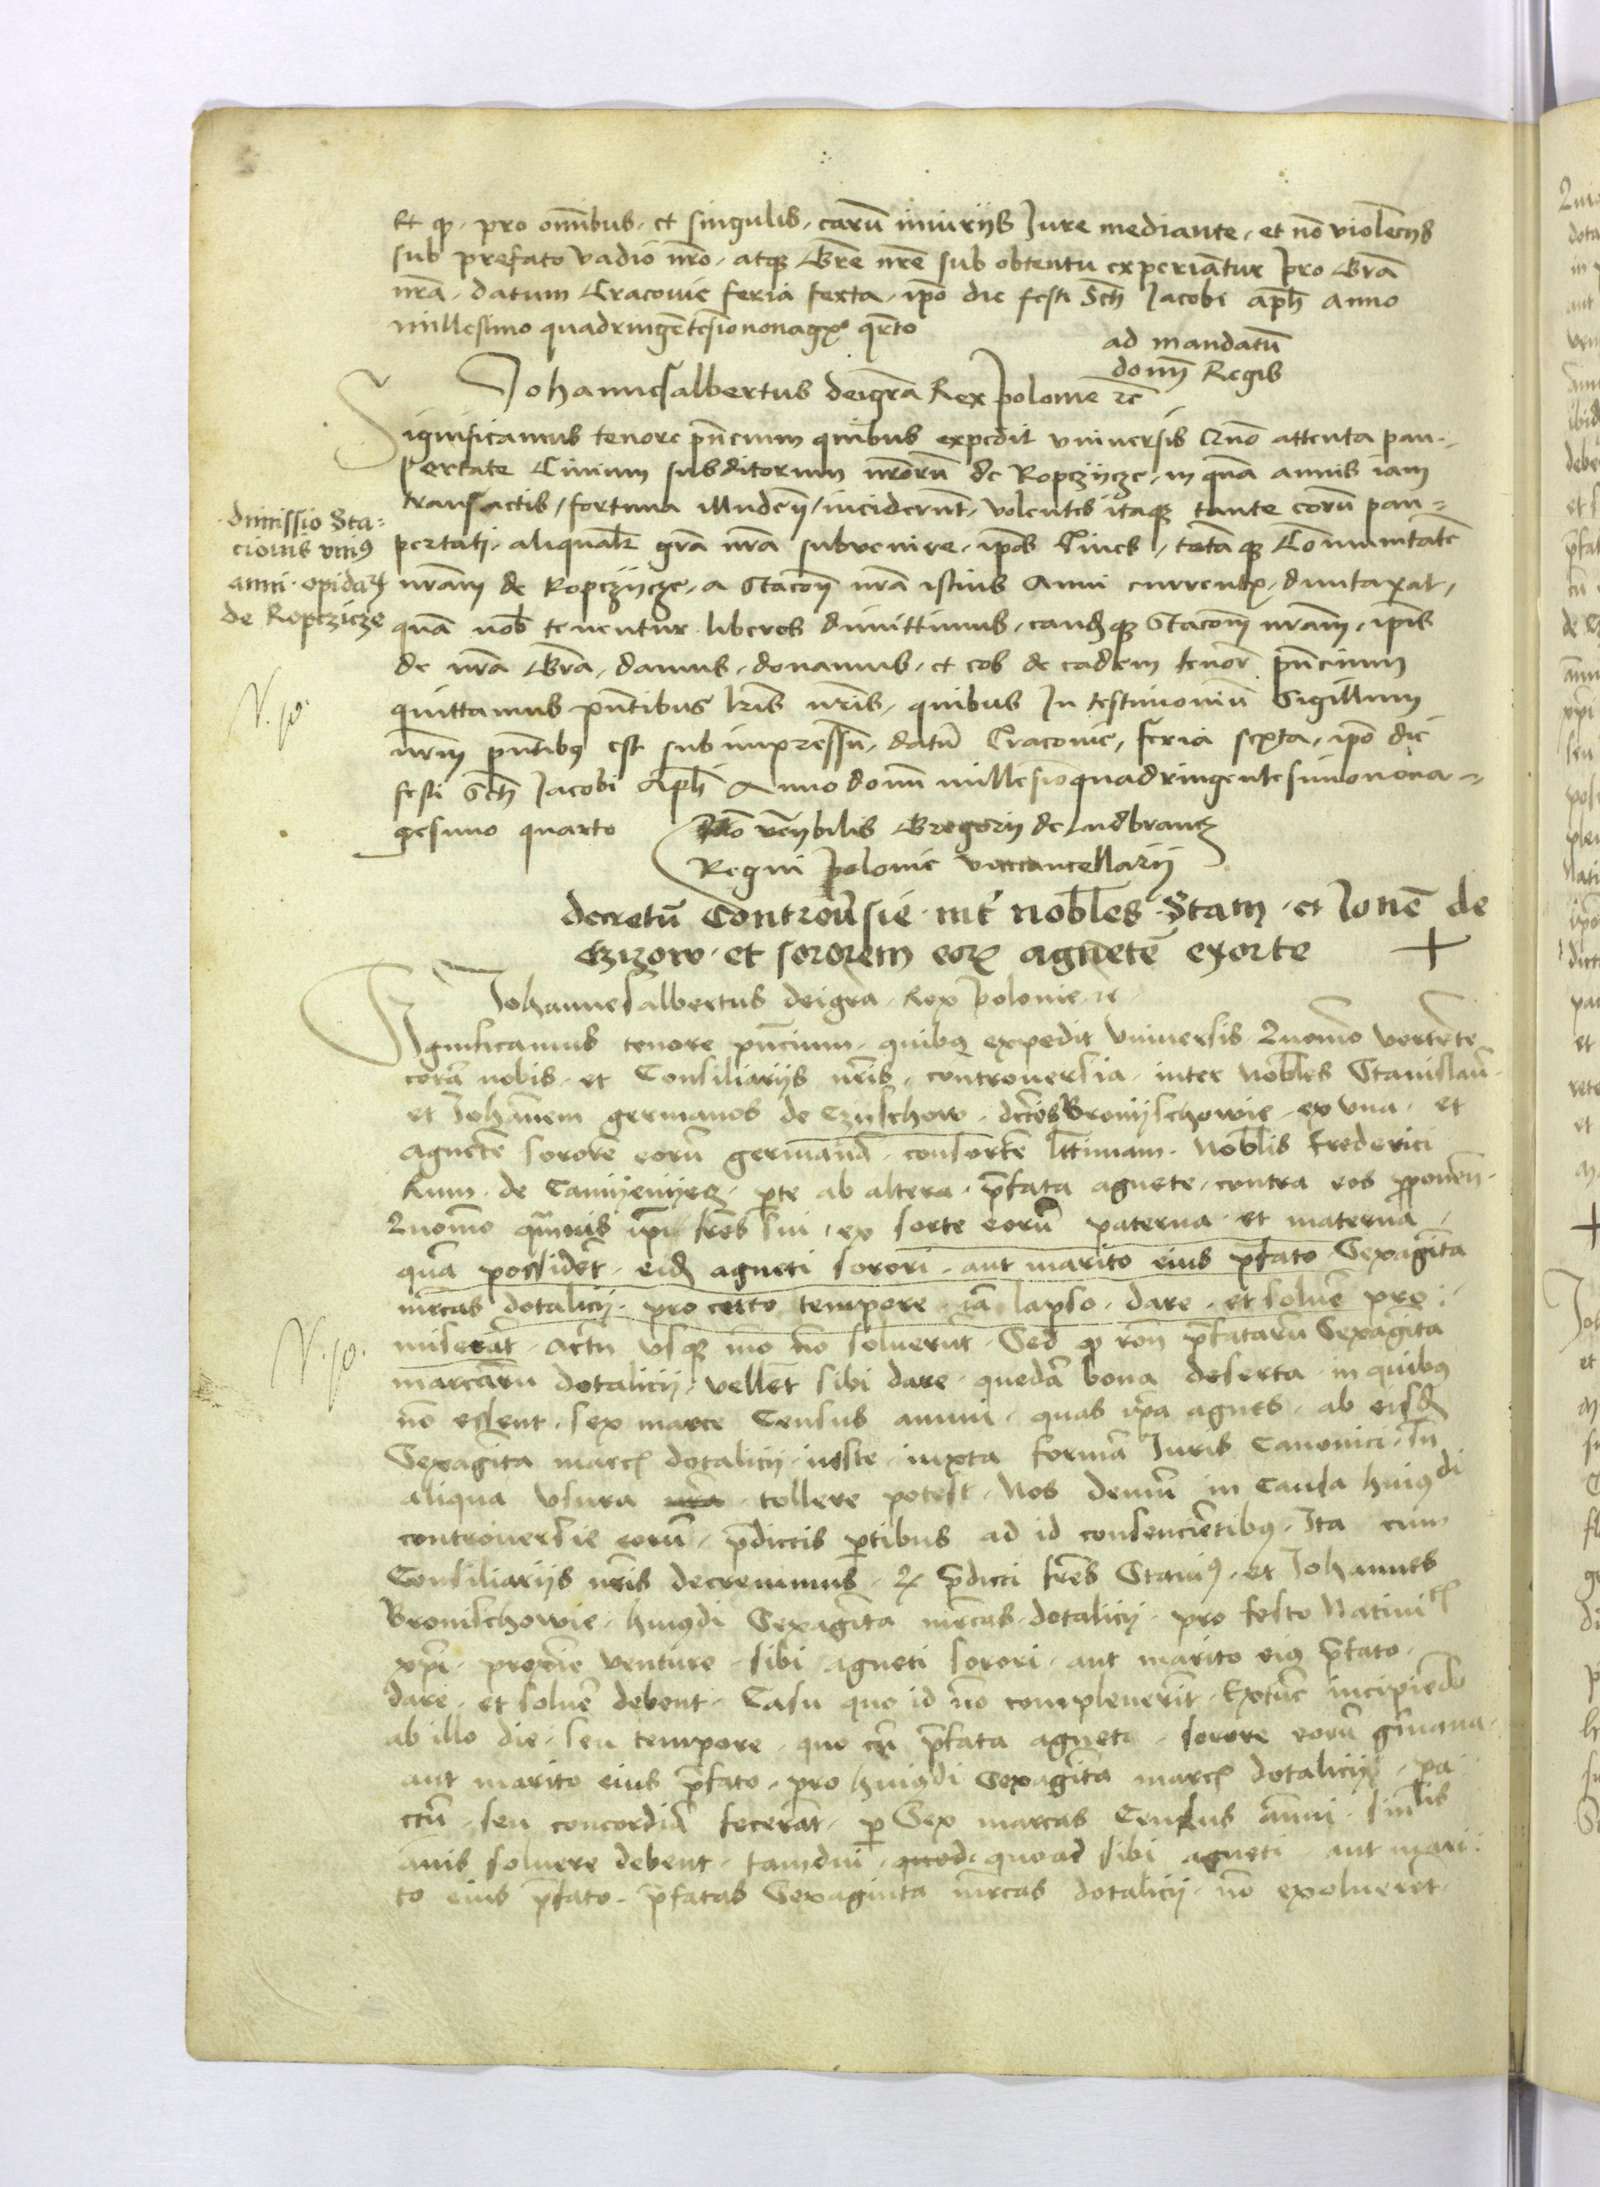 Et qz pro omībus et singulis earū iniurijs Jure mediante et nō violēcijs
sub prefato vadio nr̄o atqz Grē nrē sub obtentu experiātur pro Grā
nrā datum Cracovie feria sexta ipō die festi Scī Jacobi apl̄i anno
millesimo quadringētesīo nonagº qrto
ad mandatū
domī Regis
Johannesalbertus deigrā Rex polonie zc
Significamus tenore pn̄cium quibus expedit vniversis Quō attenta pau-
pertate Civium subditorum nr̄orū de Ropczycze in quā annis iam
transactis fortuna illudēte inciderunt volentes itaqz tante eorū pau=
pertati aliqualr grā nrā subvenire ipōs Cives totāqz Cōmunitatē
nrām de Ropczycze a Stacōe nrā istius Anni currentis duntaxat
quā nob tenentur liberos dimittimus eandqz Stacōem nrām ipīs
de nrā Grā damus donamus et eos de eadem tenor pn̄cium
quittamus pn̄tibus lr̄is nr̄is quibus In testimoniū Sigillum
nr̄m pn̄tibꝯ est subimpressū datū Cracovie feria sexta ipō die
festi Scī Jacobi Apl̄i Anno domī millesīoquadringentesimonona-
gesimo quarto
Rlo vēnbilis Gregorij de Ludbrancz
Regni polonie vicecancellarij
dimissio Sta=
cionis vniꝯ
anni opidaꝝ
de Ropczicze
N. po.
decretū Controv̄sie int̄ nobl̄es Stam et Jonē de
Czizow et sororem eoꝝ agnetē exorte +
Johannesalbertus deigrā Rex polonie zc
Significamus tenore pn̄cium quibꝯ expedit vniversis Quomō vertēte
corā nobis et Consiliarijs nr̄is controversia inter Nobl̄es Stanislaū
et Johānem germanos de Czyschow dc̄tos Bronijschowie ex vna et
Agnetē sororē eorū germanā consortē lttimam Nobl̄is Frederici
Kum de Camyenyecz pte ab altera pr̄fata agnete contra eos proponen
Quomō quavis ipī frēs sui ex sorte eorū paterna et materna
quā possidēt eidē agneti sorori aut marito eius p̄fato Sexagīta
mrcas dotalicij pro certo tempore iā lapso dare et solvē pro
miserāt actu vsqz mō nō solverūt Sed p rōne p̄fatarū Sexagīta
marcarū dotalicij vellēt sibi dare quedā bona deserta in quibꝯ
nō essent sex marce Census annui quas ip̄a agnes ab eisdē
Sexagīta marcꝭ dotalicij iuste iuxta formā Juris Canonici sn̄
aliqua vsura tollere potest Nos demū in Causa huiꝯdi
controversie eorū p̄dictis ptibus ad id consencietibꝯ Ita cum
Consiliarijs nr̄is decrevimus qz p̄dicti frēs Staniꝯ et Johannes
Bronischowie huiꝯdi Sexagīta mrcas dotalicij pro festo Nativitꝭ
xpī proxīe venture sibi agneti sorori aut marito eiꝯ p̄fato
dare et solvē debent Casu quo id nō complevērit Extūc incipiēdo
ab illo die seu tempore quo cū p̄fata agnete sorore eorū gr̄mana
aut marito eius p̄fato pro huiꝯdi Sexagīta marcꝭ dotalicij pa
ctū seu concordiā fecerāt p Sex marcas Census ānui singlis
ānis solvere debent tamdiu quoad sibi agneti aut mari
to eius p̄fato p̄fatas Sexaginta mrcas dotalicij nō exolverēt
N. po.